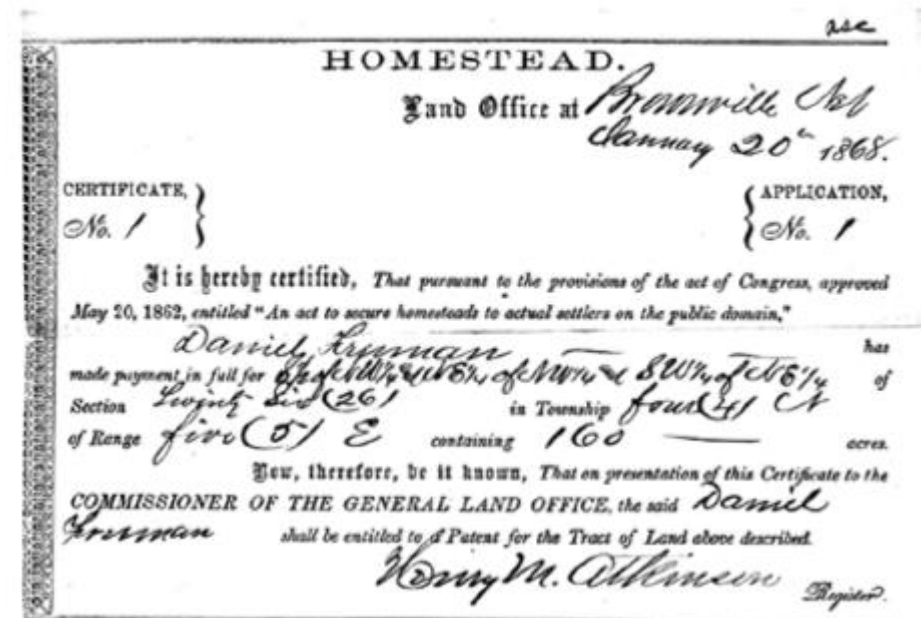 HOMESTEAD.
Land Office at Brownville Neb
January 20th 1868.
CERTIFICATE, No. 1
APPLICATION, No. 1
It is hereby certified, That pursuant to the provisions of the act of Congress, approved
May 20, 1862, entitled "An act to secure homesteads to actual settlers on the public domain,"
Daniel Freeman has
made payment in full for of NW¼ & NE¼ of NW¼ & SW¼ of NE¼ of
Section Twenty Six (26) in Township four (4) N
of Range five (5) E containing 160 acres.
Now, therefore, be it known, That on presentation of this Certificate to the
COMMISSIONER OF THE GENERAL LAND OFFICE, the said Daniel
Freeman shall be entitled to a Patent for the Tract of Land above described.
Henry M. Atkinson
Register.